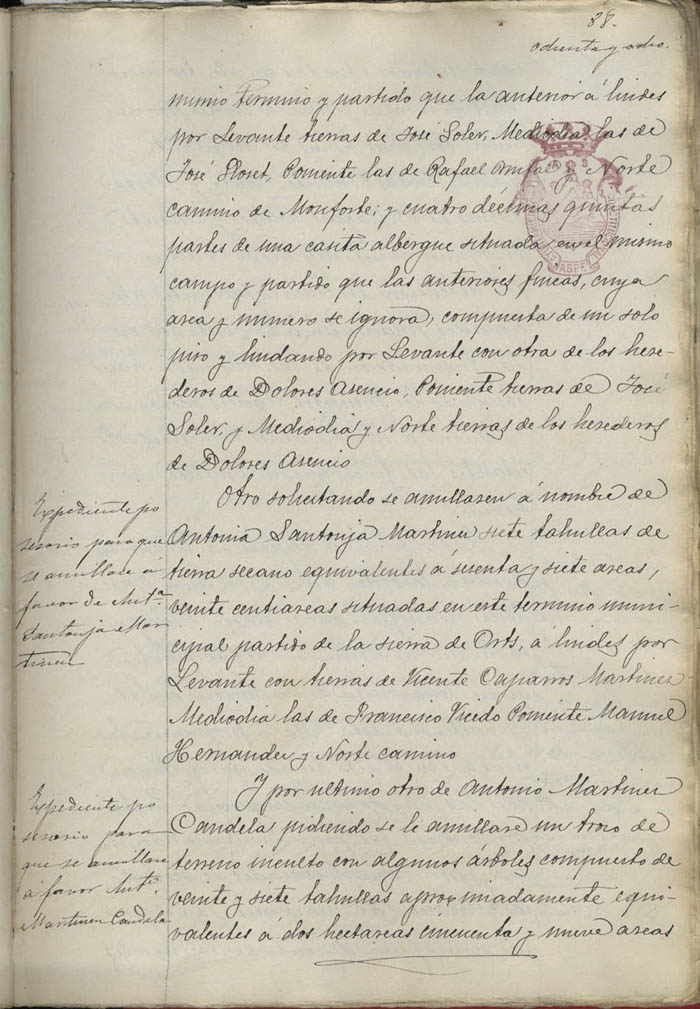 88.
ochenta y ocho.
mismo termino y partido que la anterior á lindes
por Levante tierras de José Soler, Mediodia las de
José Lloset, Poniente las de Rafael y Norte
camino de Monforte; y cuatro décimas quintas
partes de una casita albergue situada en el mismo
campo y partido que las anteriores fincas, cuya
area y numero se ignora, compuesta de un solo
piso y lindando por Levante con otra de los here-
deros de Dolores Asencio, Poniente tierras de José
Soler, y Mediodia y Norte tierras de los herederos
de Dolores Asencio
Expediente po
sesorio para que
se amillare á
favor de Antª
Santonja Mar
tinez
Otro solicitando se amillasen á nombre de
Antonia Santonja Martinez siete tahullas de
tierra secano equivalentes á sesenta y siete areas,
veinte centiareas situadas en este termino muni-
cipal partido de la sierra de Orts, á lindes por
Levante con tierras de Vicente Caparros Martinez
Mediodia las de Francisco Vicedo Poniente Manuel
Hernandez y Norte camino
Expediente po
sesorio para
que se amillare
á favor Antº
Martinez Candela
Y por ultimo otro de Antonio Martinez
Candela pidiendo se le amillare un trozo de
terreno inculto con algunos árboles compuesto de
veinte y siete tahullas aproximadamente equi-
valentes á dos hectareas cincuenta y nueve areas